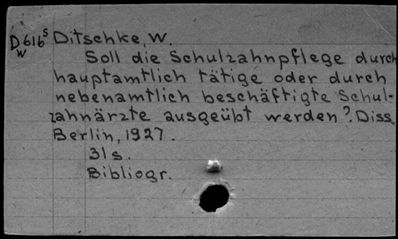 D616s Ditschke, W.
w
Soll die Schulzahnpflege durch
hauptamtlich tätige oder durch
nebenamtlich beschäftigte Schul-
zahnärzte ausgeübt werden? Diss.
Berlin, 1927.
31 s.
Bibliogr.